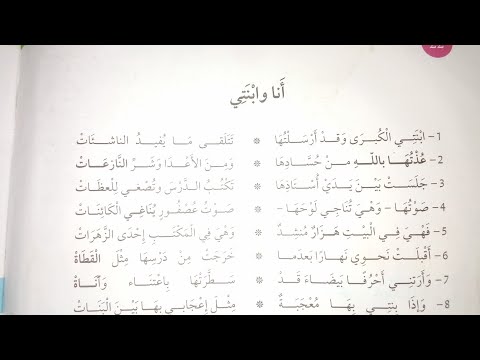 22
أَنا وابْنَتِي
1- ابْنَتِي الْكُبْرَى وَقَدْ أَرْسَلْتُهَا * تَتَلَقى مَا يُفِيدُ الناشئَات
2- عُذْتُهَا باللهِ منْ حُسَّادِهَا * وَمِنَ الأعْدَا وَشَرِّ النَّازِعَاتْ
3- جَلَسَتْ بَيْنَ يَدَيْ أُسْتَاذِهَا * تَكْتُبُ الدَّرْسَ وَتُصْغِي لِلْعظَاتْ
4- صَوْتُهَا - وَهْيَ تُنَاجِي لَوْحَهَا - * صَوْتُ عُصْفُورٍ يُنَاغِي الْكَائِنَاتْ
5- فَهْيَ فِي الْبَيْتِ هَزَارٌ مُنْشِدٌ * وَهْيَ فِي الْمَكْتَبِ إِحْدَى الزَّهَرَاتْ
6- أَقْبَلَتْ نَحْوِي نَهَارًا بَعْدمَا * خَرَجَتْ مِنْ دَرْسِهَا مِثْلَ الْقَطَاةْ
7- وَأَرَتْنِي أَحْرُفًا بَيْضَاءَ قَدْ * سَطَّرَتْهَا بِاعْتنَاء وَأَنَاةْ
8- وَإِذَا بِنْتِي بِهَا مُعْجَبَةٌ * مِثْلَ إعْجَابي بهَا بَيْنَ الْبَنَاتْ